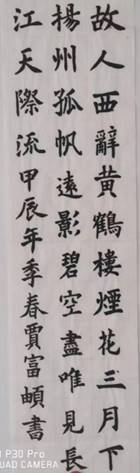 故人西辭黃鶴樓煙花三月下
揚州孤帆遠影碧空盡唯見長
江天際流甲辰年季春賈富頔書
P30 Pro
QUAD CAMERA